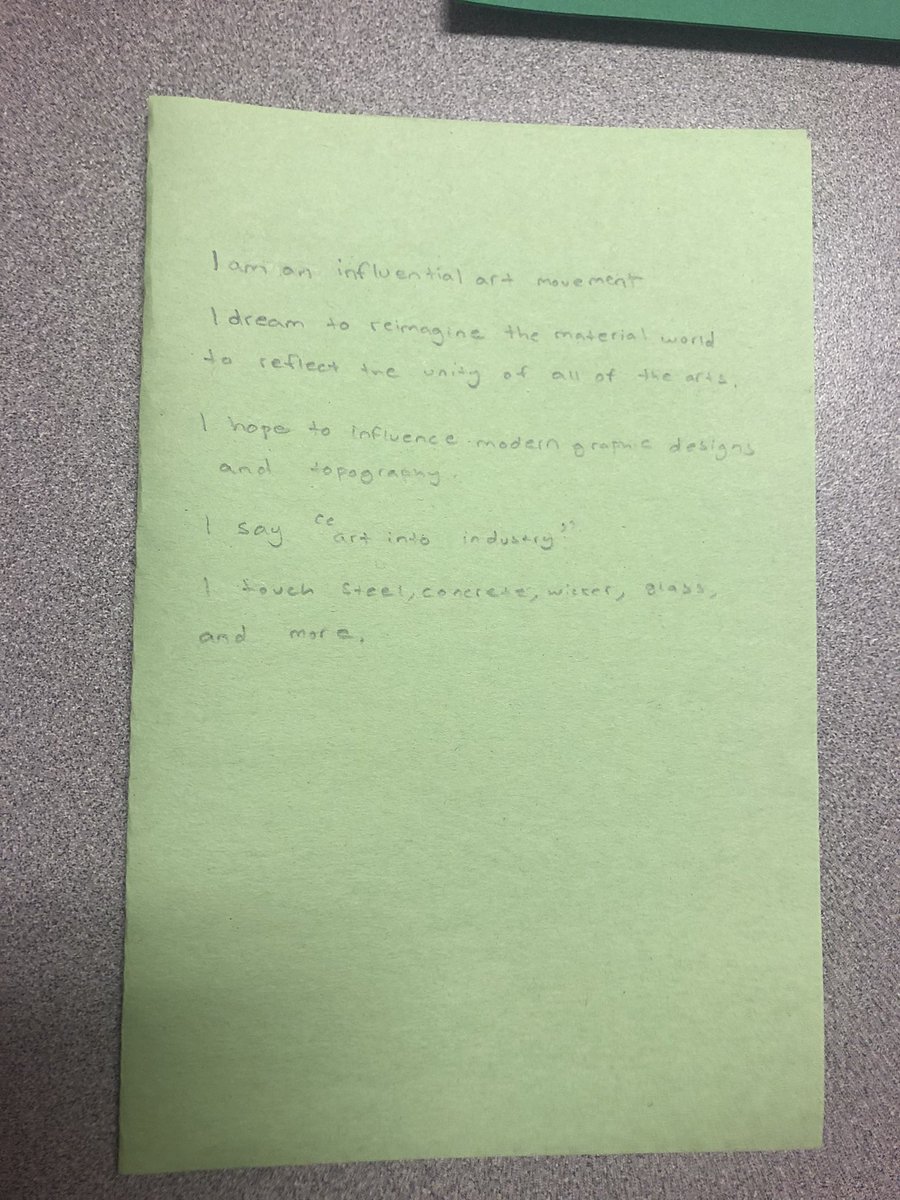 I am an influential art movement
I dream to reimagine the material world
to reflect the unity of all of the arts.
I hope to influence modern graphic designs
and topography.
I say "art into industry"
I touch steel, concrete, wicker, glass,
and more.